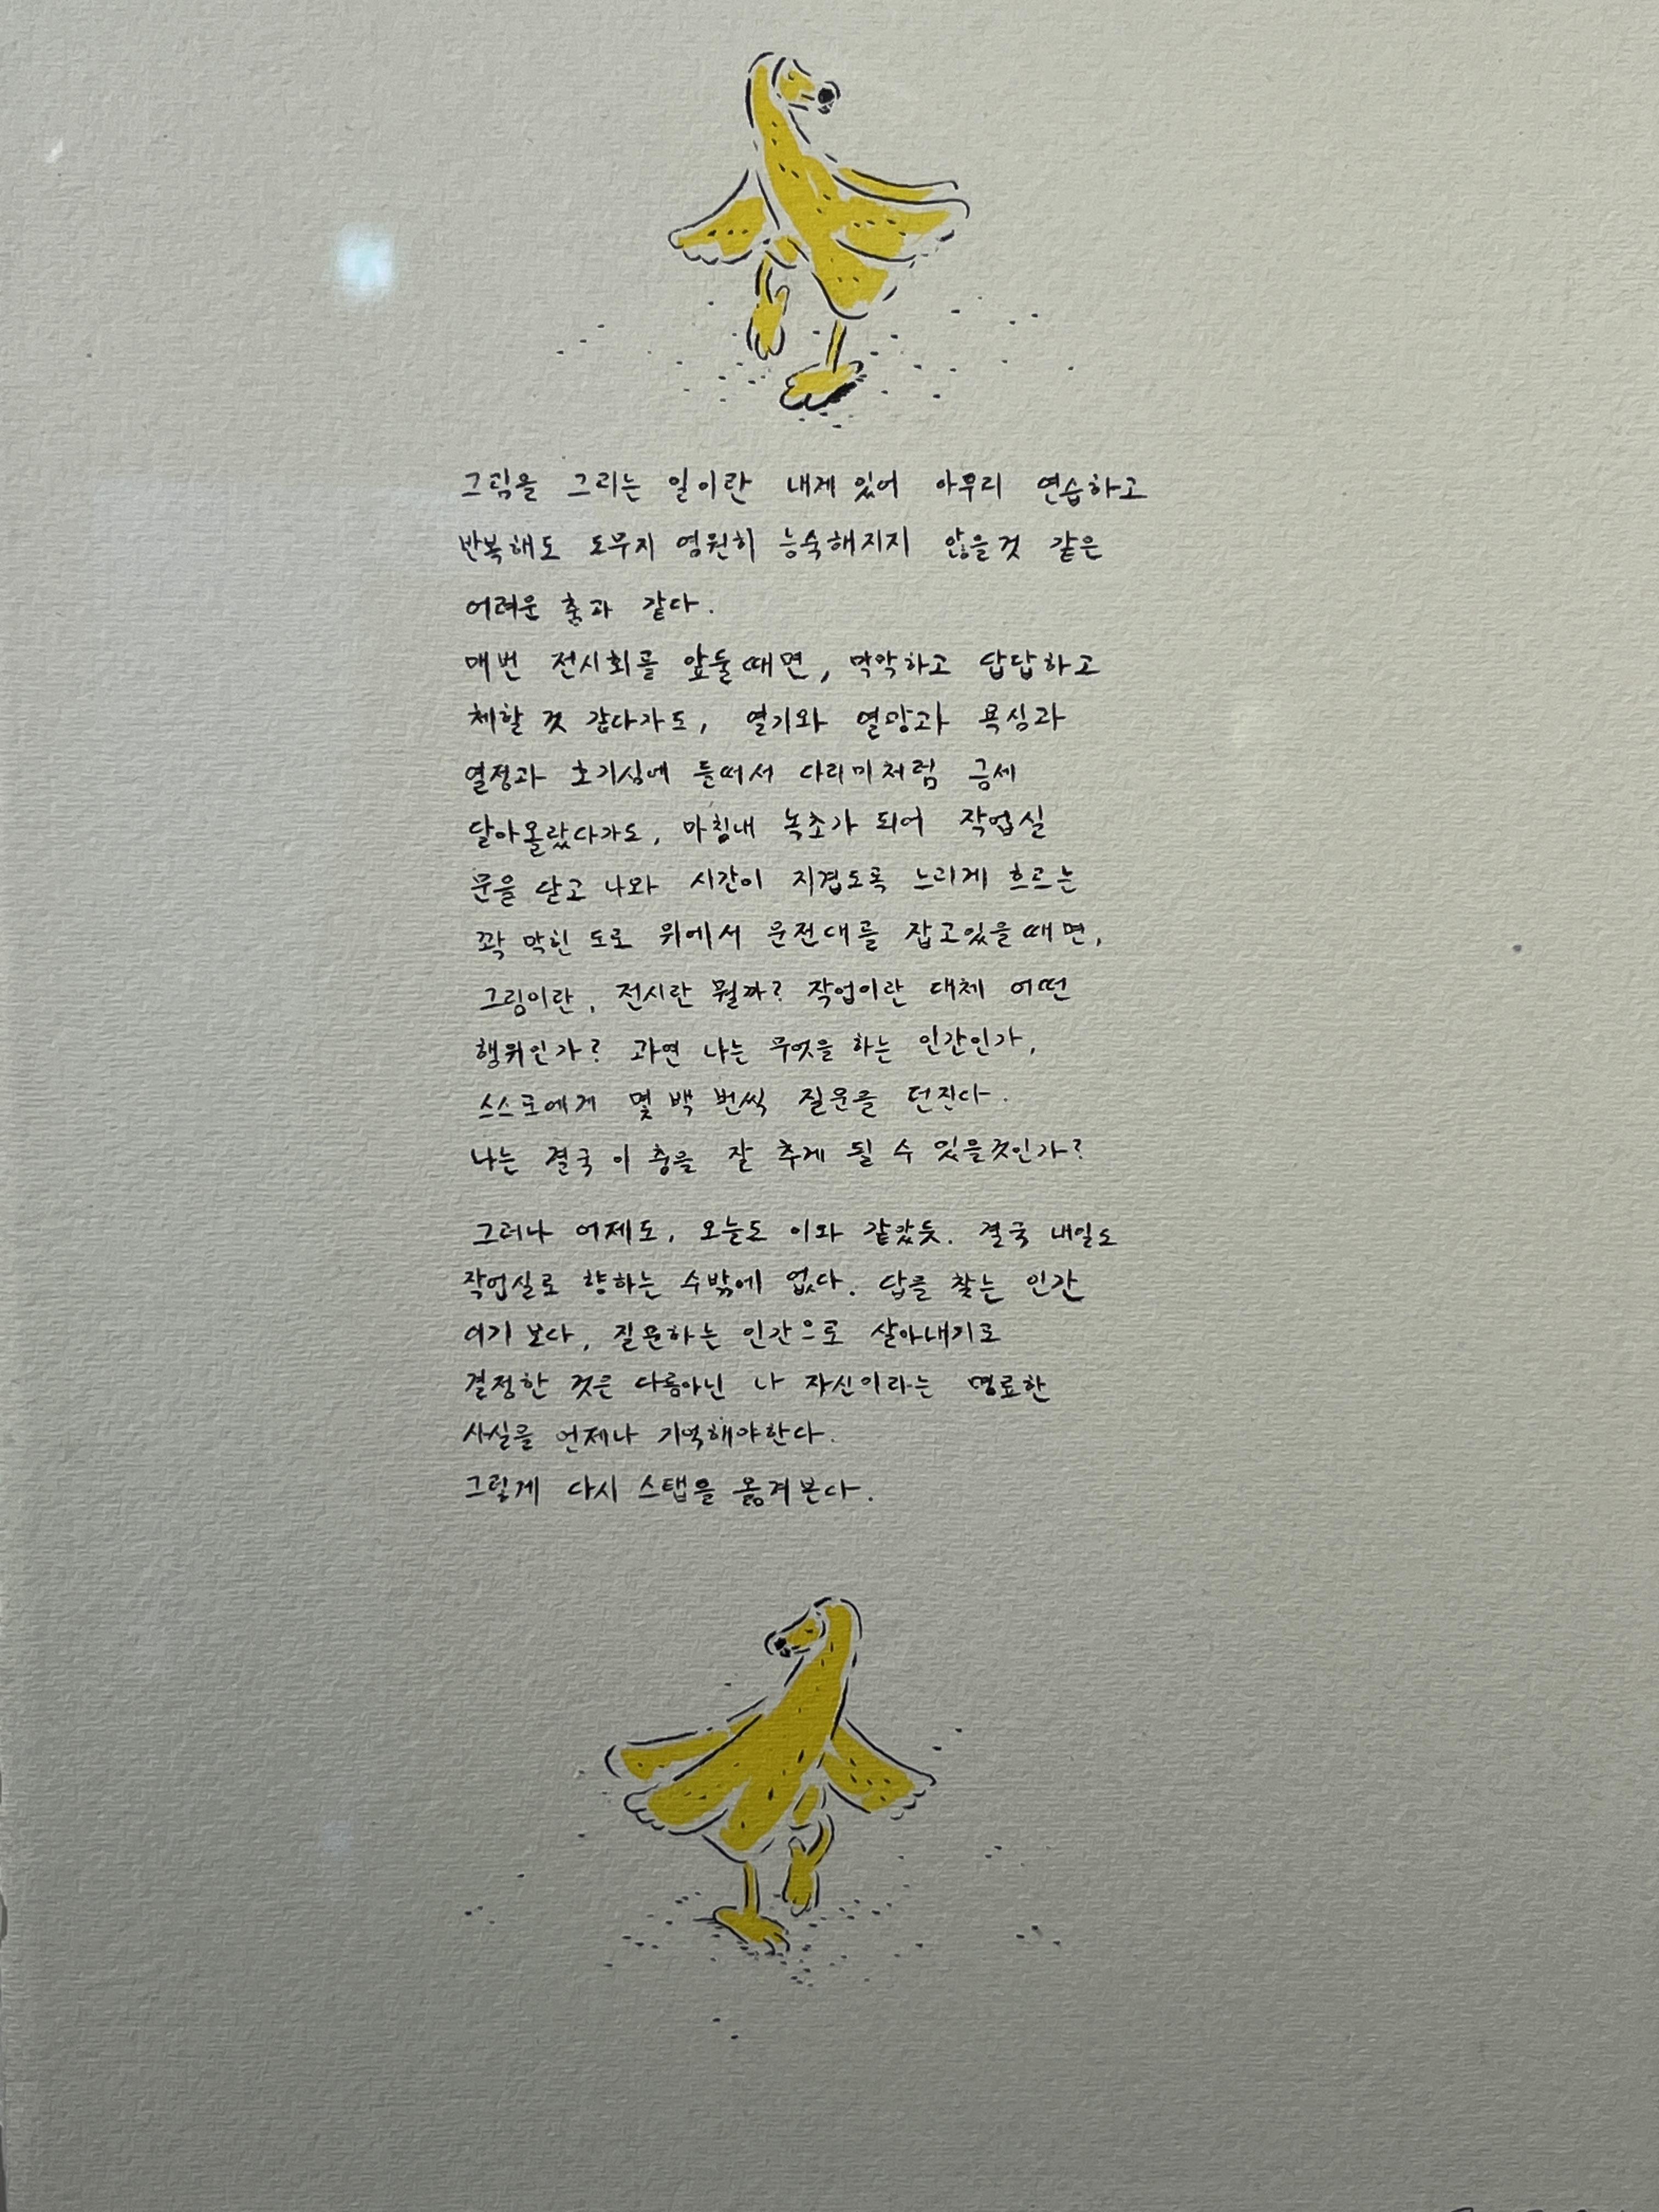 그림을 그리는 일이란 내게 있어 아무리 연습하고
반복해도 도무지 영원히 능숙해지지 않을것 같은
어려운 춤과 같다.
매번 전시회를 앞둘때면, 막막하고 답답하고
체할 것 같다가도, 열기와 열망과 욕심과
열정과 호기심에 들떠서 다리미처럼 금세
달아올랐다가도, 마침내 녹초가 되어 작업실
문을 닫고 나와 시간이 지겹도록 느리게 흐르는
꽉 막힌 도로 위에서 운전대를 잡고있을때면,
그림이란, 전시란 뭘까? 작업이란 대체 어떤
행위인가? 과연 나는 무엇을 하는 인간인가,
스스로에게 몇 백 번씩 질문을 던진다.
나는 결국 이 춤을 잘 추게 될 수 있을것인가?
그러나 어제도, 오늘도 이와 같았듯. 결국 내일도
작업실로 향하는 수밖에 없다. 답을 찾는 인간
이기 보다, 질문하는 인간으로 살아내기로
결정한 것은 다름아닌 나 자신이라는 명료한
사실을 언제나 기억해야한다.
그렇게 다시 스탭을 옮겨본다.